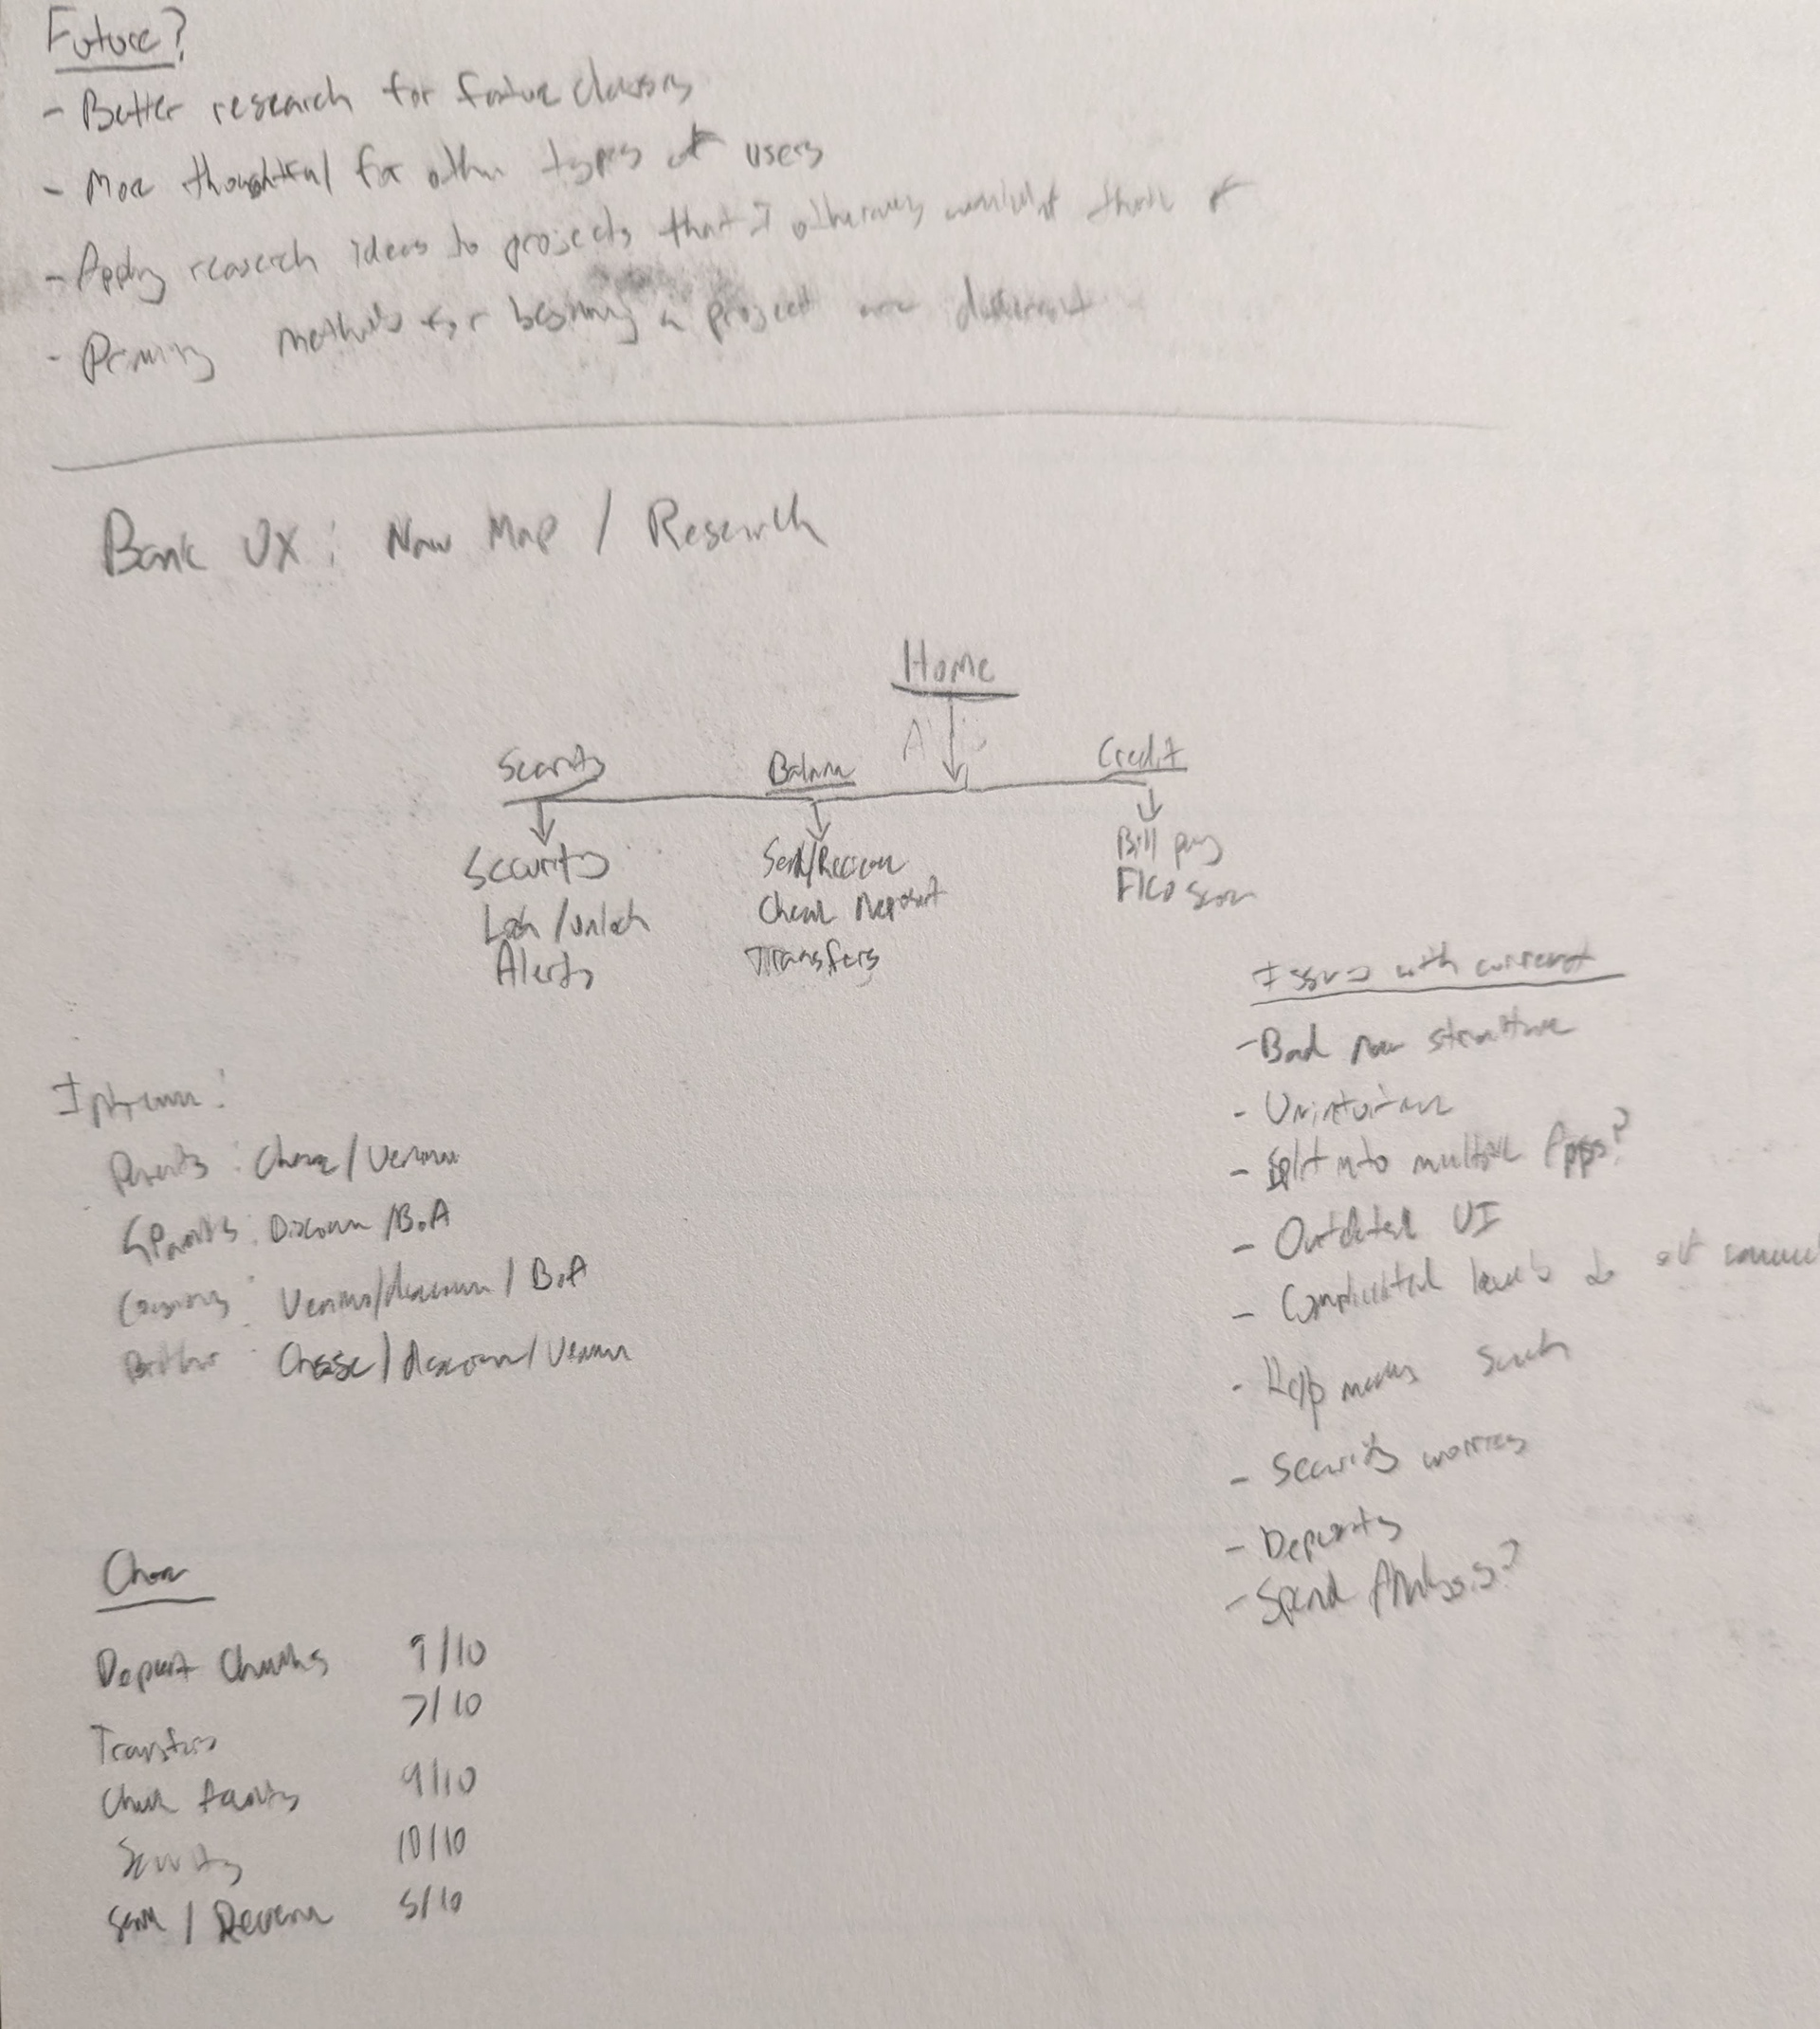 Future?
- Better research for future classes
- More thoughtful for other types of users
- Apply research ideas to projects that I otherwise wouldn't think of
- Priming methods for beginning a project are different
Bank UX: Nav Map / Research
Home
Security
Balance
Credit
Security
Lock/unlock
Alerts
Send/Receive
Check Deposit
Transfers
Bill pay
FICO score
Issues with current
- Bad nav structure
- Unintuitive
- Split into multiple Apps?
- Outdated UI
- Complicated levels
- Help menus such
- Security worries
- Deposits
- Spend Analysis?
Interview:
Parents: Chase/Venmo
GParents: Discover/BoA
Cousins: Venmo/discover/BoA
Brother: Chase/discover/Venmo
Chase
Deposit Checks 9/10
Transfers 7/10
Check 9/10
Security 10/10
Send / Receive 5/10